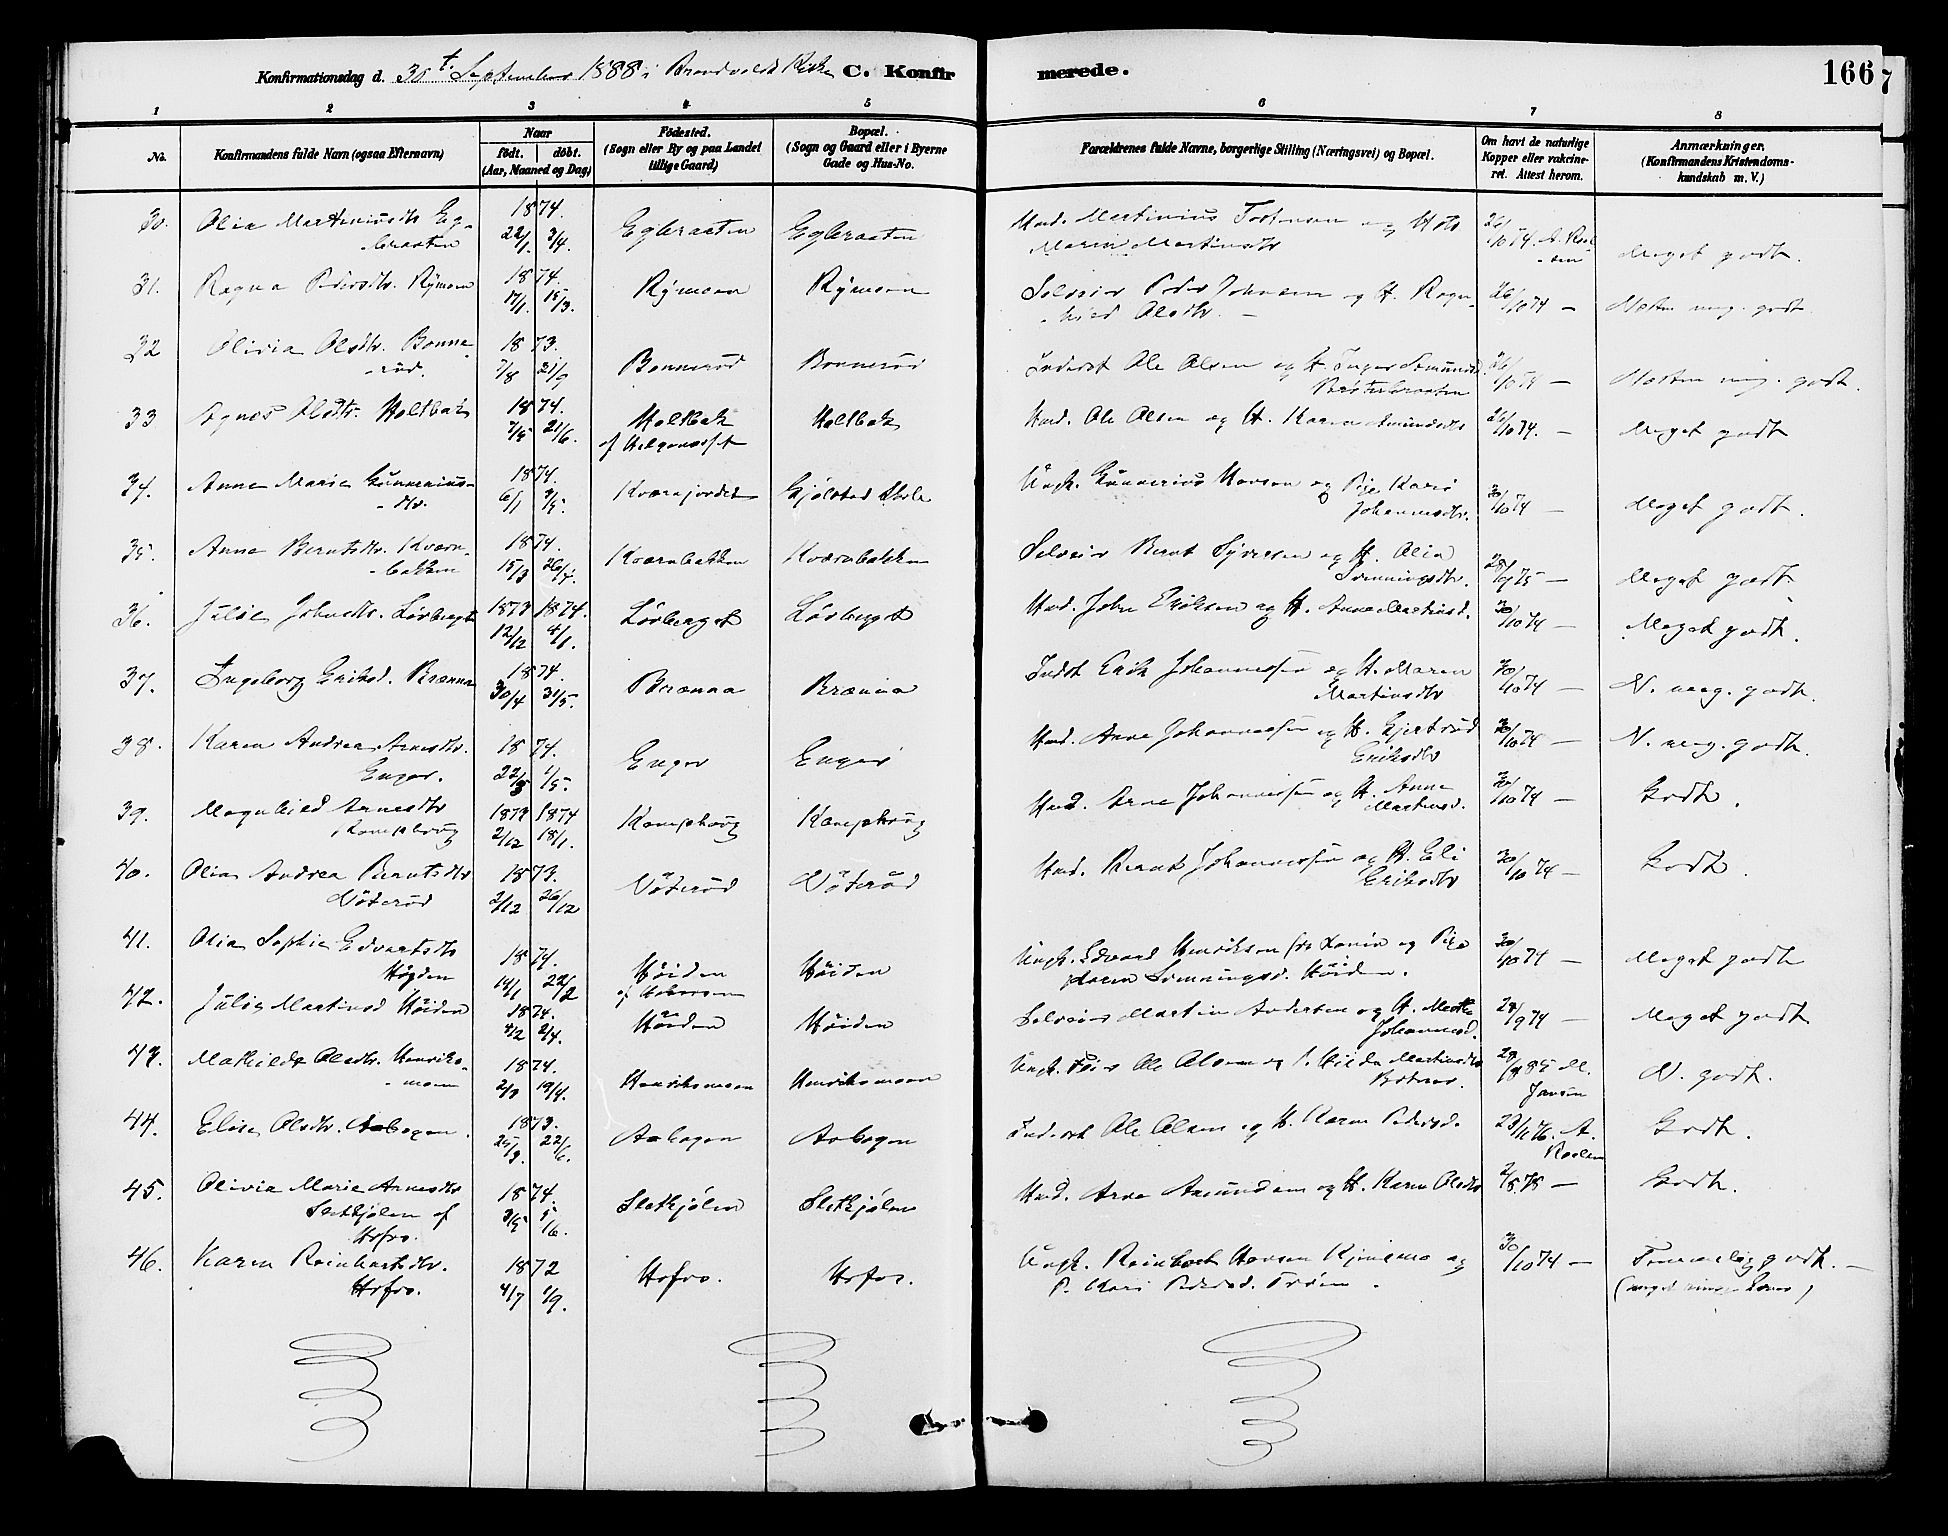 Konfirmationsdag d. 30t September 1888 i Brandvalds Kirke C. Konfirmerede. 166
1 2 3 4 5 6 7 8
No. Konfirmandens fulde Navn (ogsaa Efternavn) Naar født. døbt. (Aar, Maaned og Dag) Fødested. (Sogn eller By og paa Landet tillige Gaard) Bopæl. (Sogn og Gaard eller i Byerne Gade og Hus-No. Forældrenes fulde Navne, borgerlige Stilling (Næringsvei) og Bopæl. Om havt de naturlige Kopper eller vakcineret. Attest herom. Anmærkninger. (Konfirmandens Kristendomskundskab m. V.)
30. Olia Martiniusdtr Eg- 1874.
braaten 22/1 3/4. Egbraaten Egbraaten Husd. Martinius og Hst. Maren Martinsdtr 26/10 74. Meget godt.
31. Ragna Pedersdtr. Rymoen 1874.
17/1. 15/3. Rymoen Rymoen Selveier Peder Johnsen og H. Ragn-
hild Olsdtr. 26/10 74 — Næsten meg. godt.
32 Olivia Olsdtr. Bonne- 1873.
rud. 7/8 21/9 Bonnerud Bonnerud Inderst Ole Olsen og H. Inger Amunds. 26/10 74 — Næsten meg. godt.
33 Agnes Olsdtr. Holtbak 1874.
7/5 21/6. Holtbak Holtbak Husd. Ole Olsen og H. Karen Amundsdtr 26/10 74. — Meget godt
34. Anne Marie Gunnerius- 1874.
dtr. 6/1 3/5. Kværnjordet Gjølstad Ungk. Gunnerius Hansen og Pige Kari
Johannesdtr. 30/10 74 — Meget godt.
35. Anne Berntsdtr. Kværn- 1874.
bakken 15/3 26/4. Kværnbakken Kværnbakken Selveier Bernt Syversen og H. Olia
Svenningsdtr. 28/ 75 — Meget godt
36. Julie Johnsdtr. Løvberget 1873 1874.
12/12 4/1. Løvberget Løvberget Husd. John Eriksen og H. Anne Martinsd. 30/10 74 — Meget godt.
37. Ingeborg Eriksd. Brænna 1874.
30/4 31/5. Brænna Brænna Indst Erik Johannessen og H. Maren
Martinsdtr 30/10 74 — N. meg. godt.
38. Karen Andrea Arnesdtr. 1874.
Enger. 22/3 1/5. Enger Enger Husd. Arne Johannessen og H. Gjertrud
Eriksdtr 30/10 74 — N. meg. godt.
39. Magnhild Arnesdtr 1873 1874
Kamphoug 2/12 18/1. Kamphoug Kamphoug Husd. Arne Johannessen og H. Anne
Martinsd. 30/10 74 — Godt.
40. Olia Andrea Berntsdtr 1873.
Nøterud 2/12 26/12 Nøterud Nøterud Husd. Bernt Johannessen og H. Eli
Eriksdtr 30/10 74 — Godt.
41. Olia Sophie Edvartsdtr 1874.
Høiden 14/1 22/2 Høiden Høiden Ungk. Edvard Henriksen og Pige
Karen Svenningsd. Høiden. 30/10 74 — Meget godt
42. Julie Martinsd Høiden 1874.
4/2 2/4. Høiden Høiden Selveier Martin Andersen og H. Marthe
Johannesd. 24/9 74 — Meget godt
43. Mathilde Olsdtr. Henriks- 1874.
moen 2/3 19/4. Henriksmoen Henriksmoen Ungk. Ole Olsen og P. Hilda Martinsdtr 28/8 85 M. Jansen N. godt.
44. Elise Olsdtr. Aabogen. 1873.
25/3. 22/6. Aabogen Aabogen Inderst Ole Olsen og H. Karen Pedersd. 23/11 76. A. Godt.
45. Olivia Marie Arnesdtr 1874.
Sletkjølen af
Hofos. 3/5 5/6. Sletkjølen Sletkjølen Husd. Arne Amundsen og H. Karen Olsdtr 2/8 78 — Godt.
46. Karen Reinhartsdtr. 1872
Hofos. 4/7 1/9. Hofos. Hofos. Ungk. Reinhart Hansen og
P. Mari Pedersd. 30/10 74 — godt. —